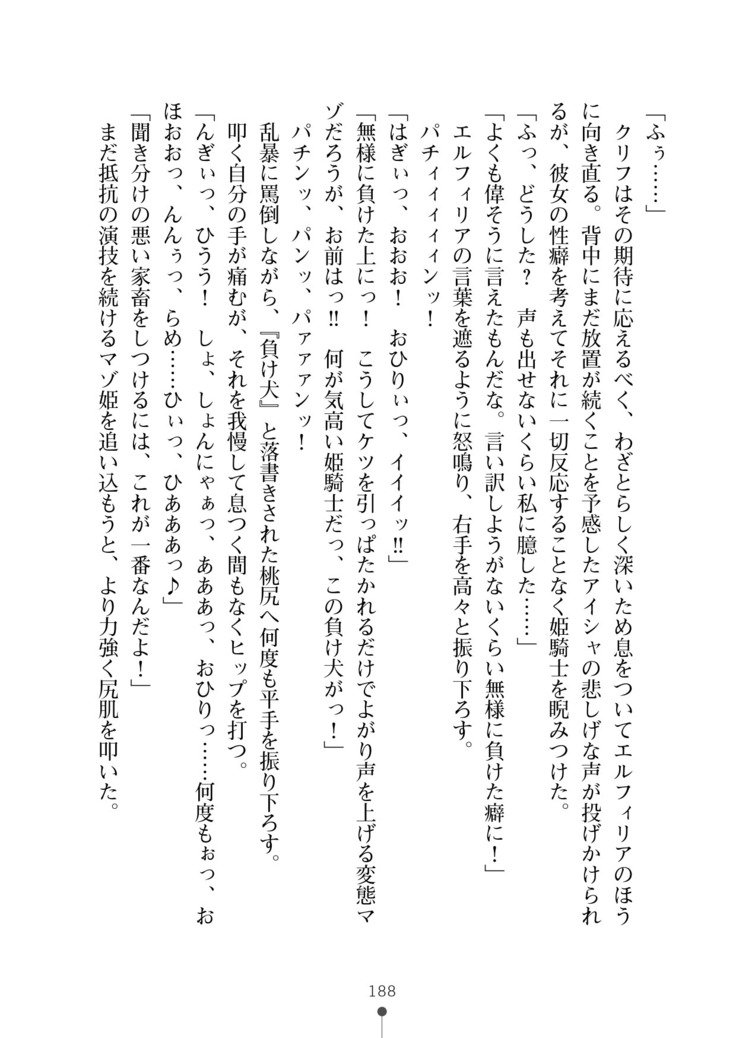 「ふぅ……」
　クリフはその期待に応えるべく、わざとらしく深いため息をついてエルフィリアのほう
に向き直る。背中にまだ放置が続くことを予感したアイシャの悲しげな声が投げかけられ
るが、彼女の性癖を考えてそれに一切反応することなく姫騎士を睨みつけた。
「ふっ、どうした？　声も出せないくらい私に臆した……」
「よくも偉そうに言えたもんだな。言い訳しようがないくらい無様に負けた癖に！」
　エルフィリアの言葉を遮るように怒鳴り、右手を高々と振り下ろす。
　パチィィィィィンッ！
「はぎぃっ、おおお！　おひりぃっ、イイイッ‼」
「無様に負けた上にっ！　こうしてケツを引っぱたかれるだけでよがり声を上げる変態マ
ゾだろうが、お前はっ‼　何が気高い姫騎士だっ、この負け犬がっ！」
　パチンッ、パンッ、パァァァンッ！
　乱暴に罵倒しながら、『負け犬』と落書きされた桃尻へ何度も平手を振り下ろす。
　叩く自分の手が痛むが、それを我慢して息つく間もなくヒップを打つ。
「んぎぃっ、ひうう！　しょ、しょんにゃぁっ、あああっ、おひりっ……何度もぉっ、お
ほおおっ、んんぅっ、らめ……ひぃっ、ひあああっ♪」
「聞き分けの悪い家畜をしつけるには、これが一番なんだよ！」
　まだ抵抗の演技を続けるマゾ姫を追い込もうと、より力強く尻肌を叩いた。
188